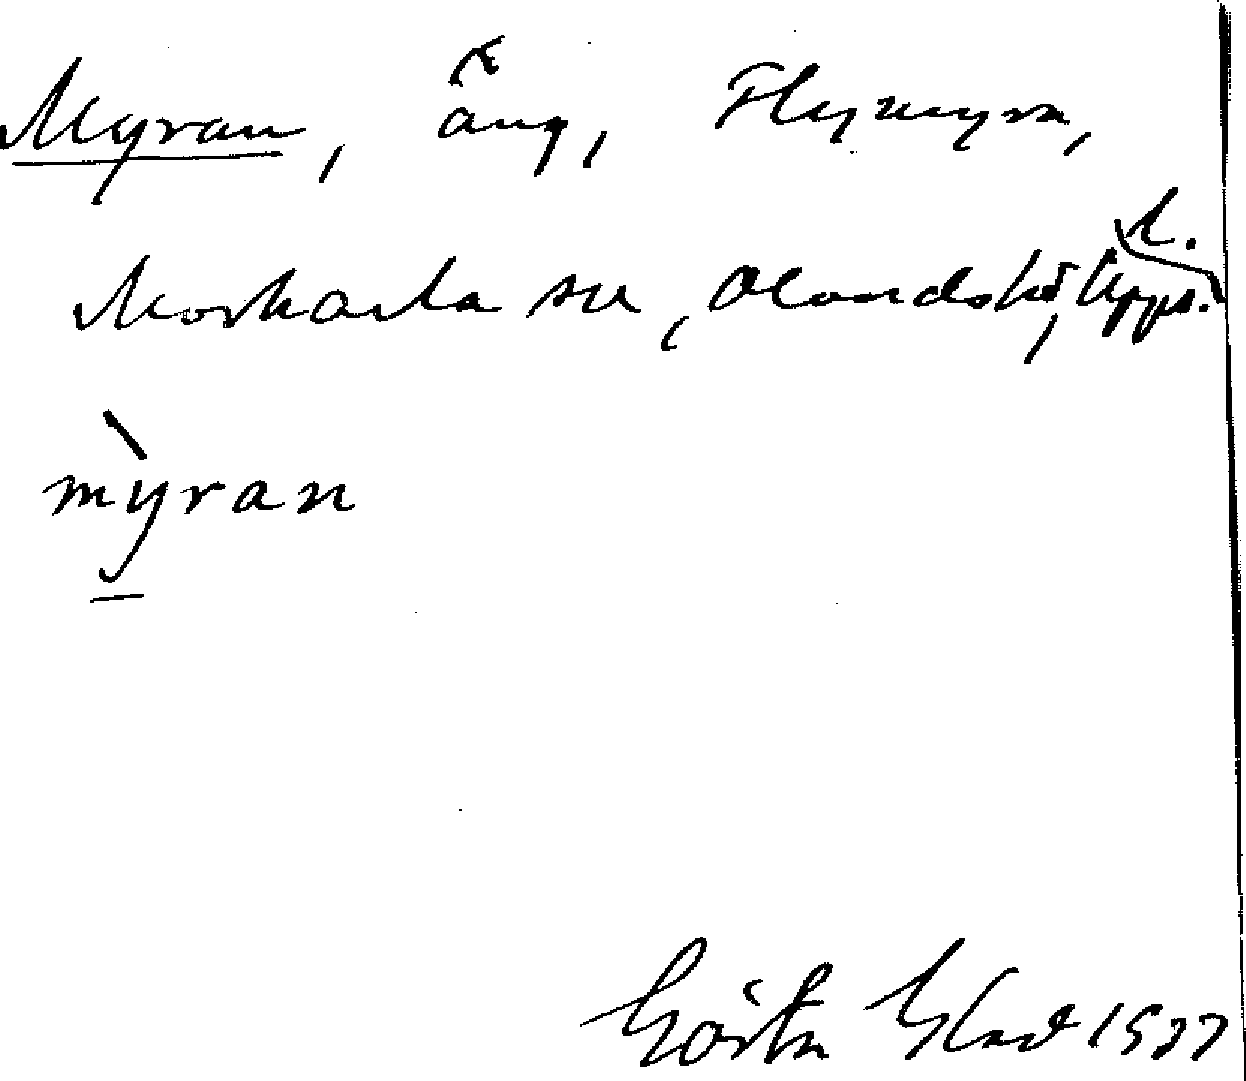 Myran, äng, Flymyra,
Morkarla sn, Olands hd, Upps. l.
mỳran
Gösta Elad 1937